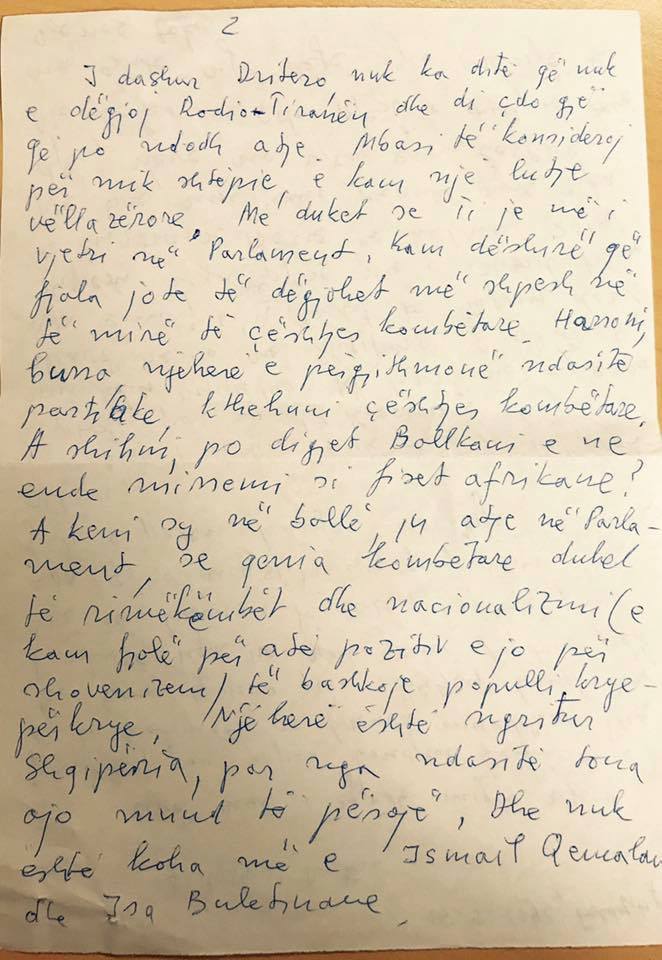 2
I dashur Dritero, nuk ka ditë që nuk
e dëgjoj Radio-Tiranën dhe di çdo gjë
që po ndodh atje. Mbasi të konsideroj
për mik shtëpie, e kam një lutje
vëllazërore. Më duket se Ti je më i
vjetri në Parlament. Kam dëshirë që
fjala jote të dëgjohet më shpesh në
të mirë të çështjes kombëtare. Harroni,
burra njëherë e përgjithmonë ndasitë
partiake, kthehuni çështjes kombëtare.
A shihni, po digjet Ballkani e ne
ende mirremi si fiset afrikane?
A keni sy në ballë, ju atje në Parla-
ment, se qenia kombëtare duhet
të rimëkëmbët dhe nacionalizmi (e
kam fjalë për atë pozitiv e jo për
shovenizem) të bashkoje populli krye-
përkrye. Njëherë është ngritur
Shqipëria, por nga ndasitë tona
ajo mund të pësojë, Dhe nuk
është koha më e Ismail Qemalau
dhe Isa Buletinave.